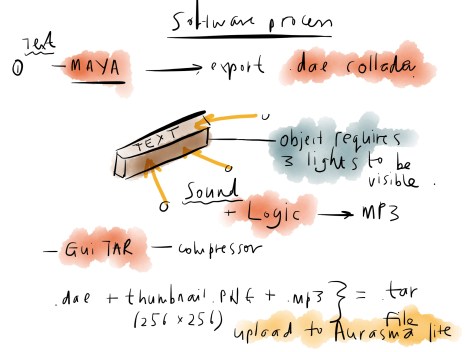 Software process
Text
O — MAYA → export .dae collada
TEXT
object requires
3 lights to be
visible.
Sound
+ Logic → MP3
— GuiTAR — compressor
.dae + thumbnail .PNG + .mp3 } = .tar
(256 × 256) file
upload to Aurasma lite